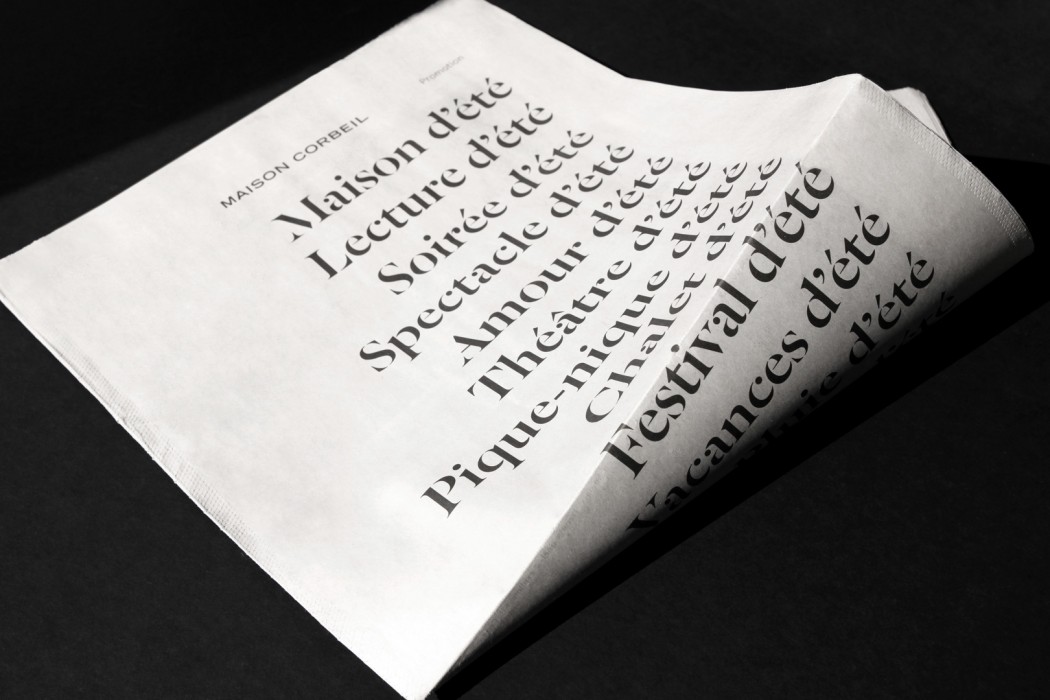 Promotion
MAISON CORBEIL
Maison d'été
Lecture d'été
Soirée d'été
Spectacle d'été
Amour d'été
Théâtre d'été
Pique-nique d'été
Chalet d'été
Festival d'été
Vacances d'été
d'été